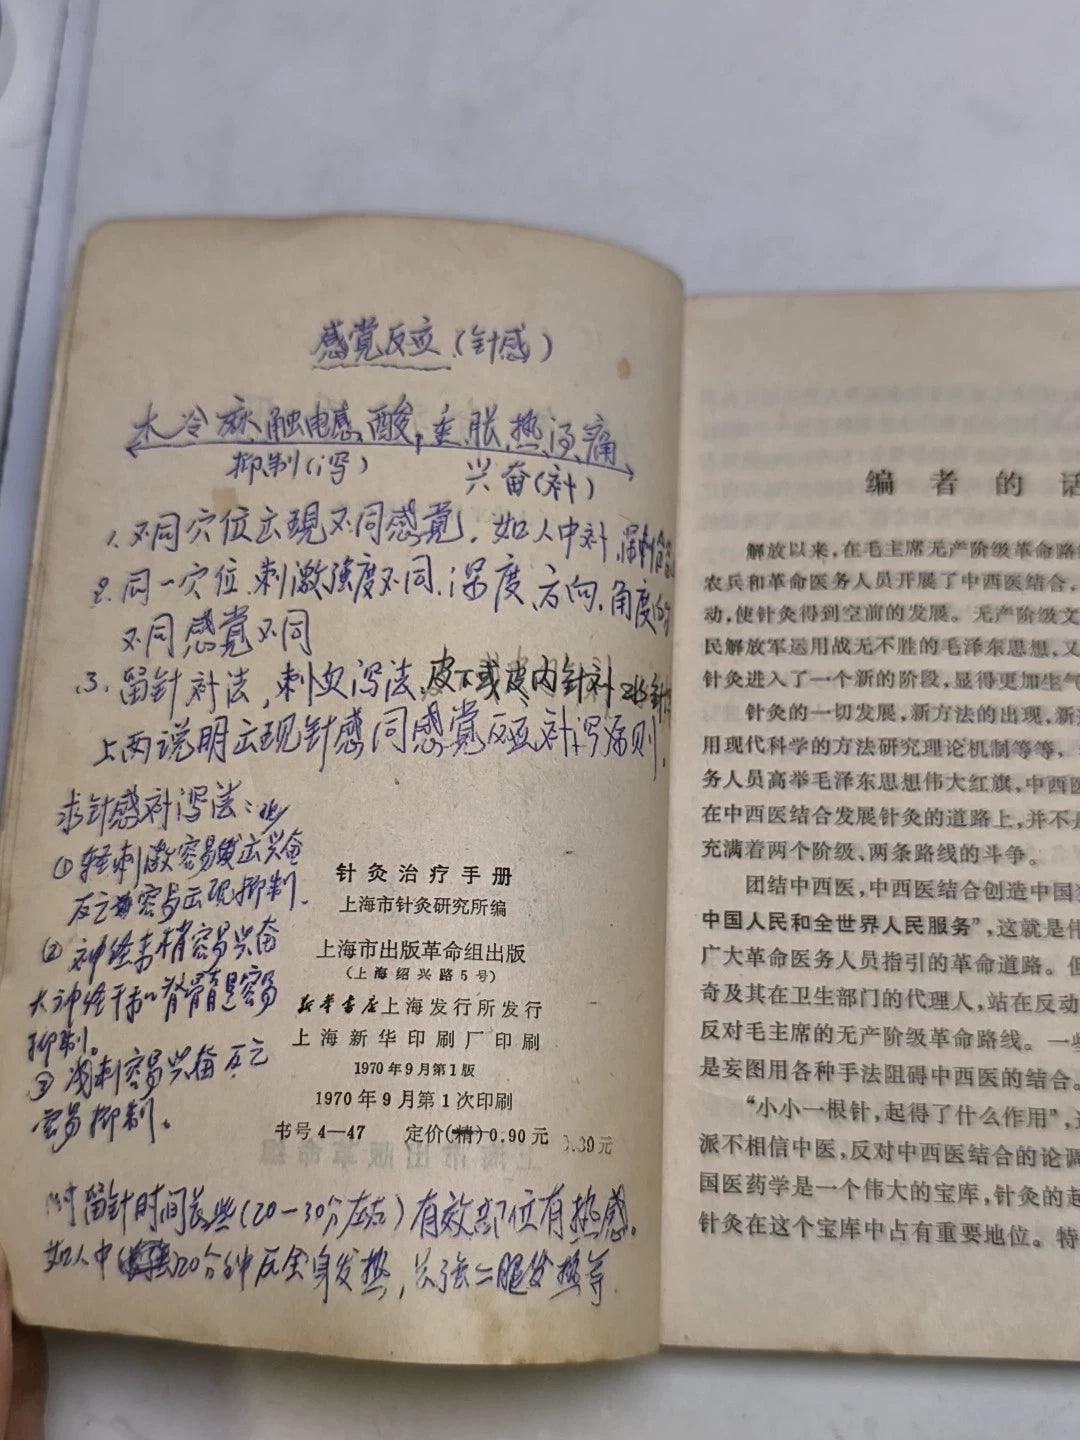 感觉反应（针感）
木冷麻触电感酸，重胀热汤痛
抑制（泻）
兴奋（补）
1. 不同穴位出现不同感觉，如人中补，深刺
2. 同一穴位，刺激强度不同，深度、方向、角度
不同感觉不同
3. 留针补法，刺次泻法，皮下或皮内针补
上两说明出现针感同感觉反应补泻原则。
求针感补泻法：
① 轻刺激容易出兴奋
反之容易出现抑制．
② 神经末梢容易兴奋
大神经干和脊髓容易
抑制。
③ 浅刺容易兴奋反之
容易抑制。
针灸治疗手册
上海市针灸研究所编
上海市出版革命组出版
（上海绍兴路5号）
新华书店上海发行所发行
上海新华印刷厂印刷
1970年9月第1版
1970年9月第1次印刷
书号4—47 定价(精)0.90元
0.39元
留针时间长些（20—30分左右）有效部位有热感。
如人中20分钟后全身发热，关强二腿发热等
编者的话
解放以来，在毛主席无产阶级革命路
农兵和革命医务人员开展了中西医结合，
动，使针灸得到空前的发展。无产阶级文
民解放军运用战无不胜的毛泽东思想，又
针灸进入了一个新的阶段，显得更加生气
针灸的一切发展，新方法的出现，新
用现代科学的方法研究理论机制等等，
务人员高举毛泽东思想伟大红旗，中西医
在中西医结合发展针灸的道路上，并不是
充满着两个阶级、两条路线的斗争。
团结中西医，中西医结合创造中国
中国人民和全世界人民服务”，这就是伟
广大革命医务人员指引的革命道路。但
奇及其在卫生部门的代理人，站在反动
反对毛主席的无产阶级革命路线。一些
是妄图用各种手法阻碍中西医的结合。
“小小一根针，起得了什么作用”，
派不相信中医，反对中西医结合的论调
国医药学是一个伟大的宝库，针灸的起
针灸在这个宝库中占有重要地位。特